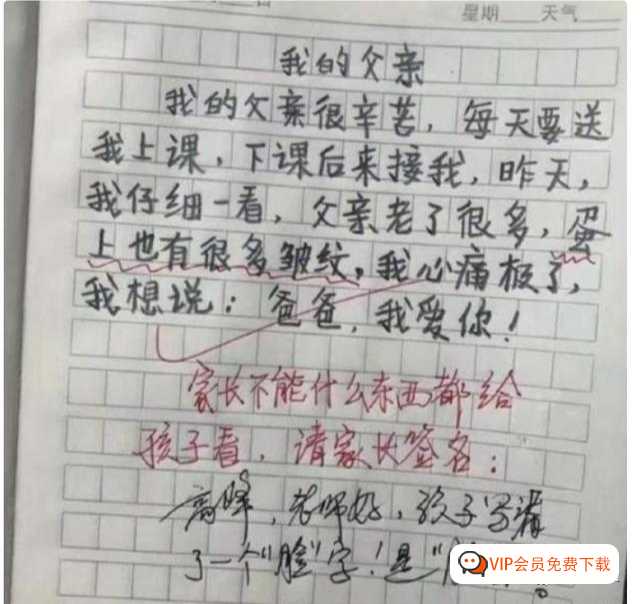 日
星期 天气
我的父亲
我的父亲很辛苦，每天要送
我上课，下课后来接我，昨天，
我仔细一看，父亲老了很多，蛋
上也有很多皱纹，我心痛极了，
我想说：爸爸，我爱你！
家长不能什么东西都给
孩子看，请家长签名：
高峰，老师好，孩子写错
了一个“脸”字！是“
VIP会员免费下载